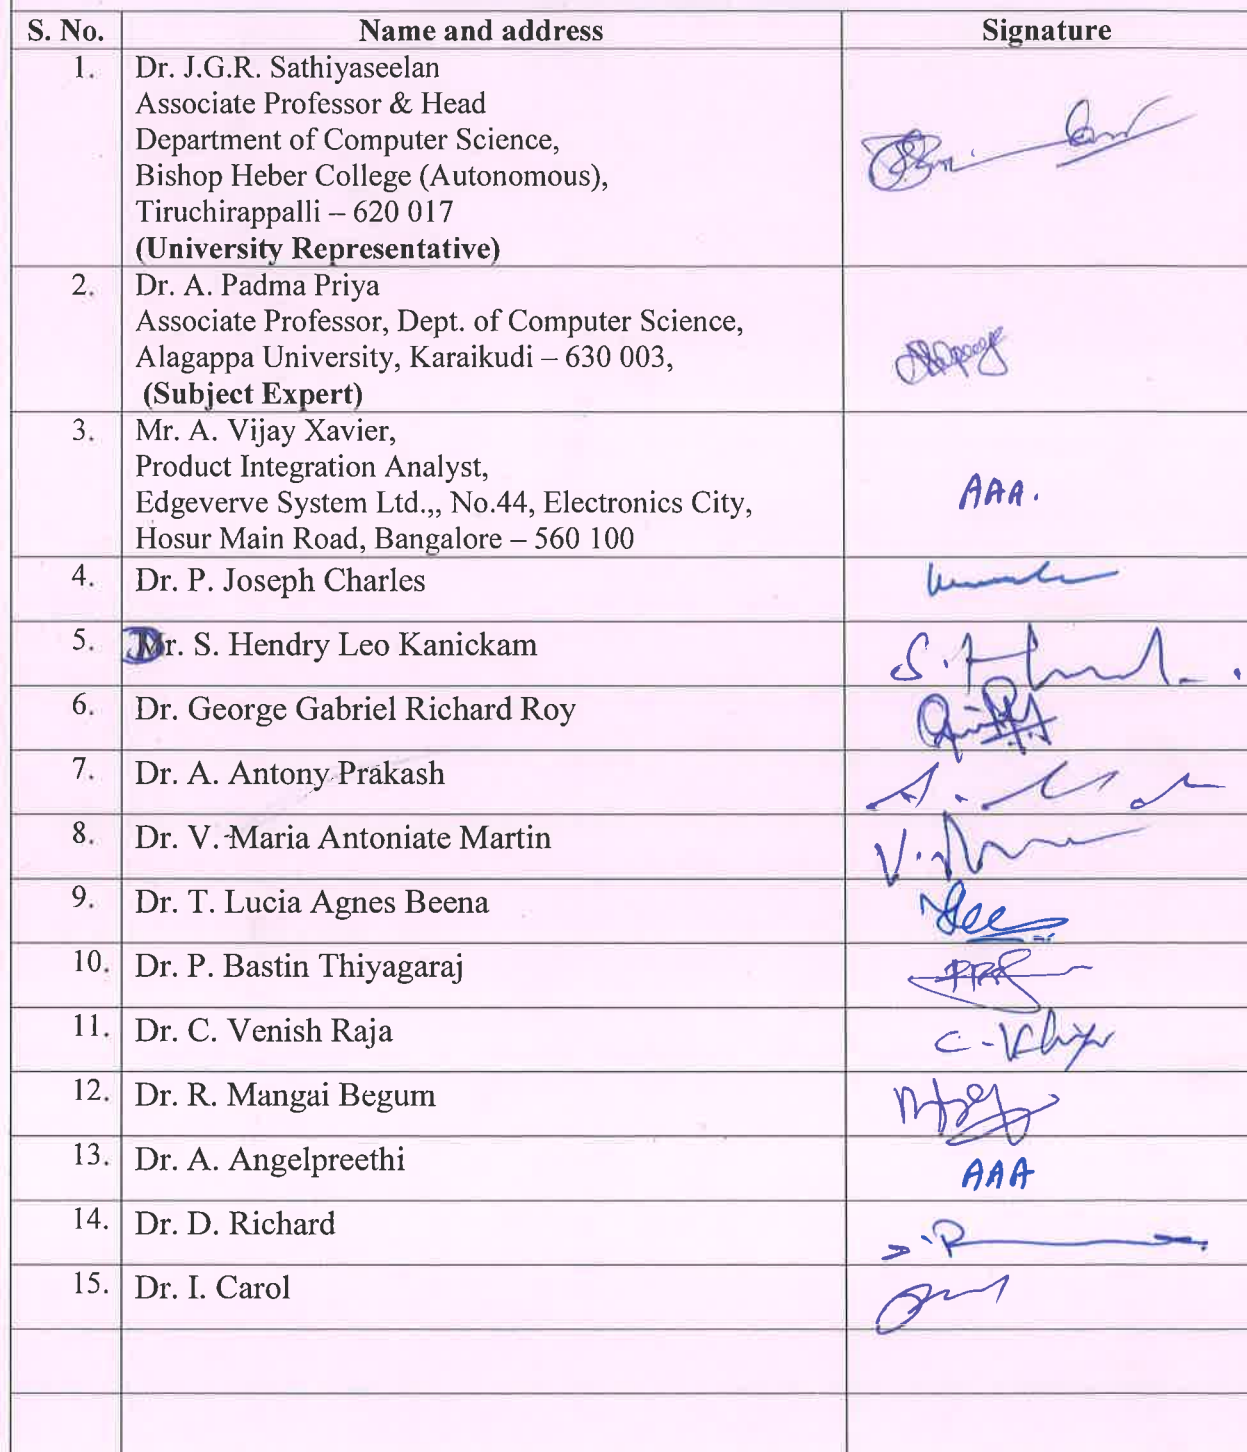 S. No. Name and address Signature
1. Dr. J.G.R. Sathiyaseelan
Associate Professor & Head
Department of Computer Science,
Bishop Heber College (Autonomous),
Tiruchirappalli – 620 017
(University Representative)
2. Dr. A. Padma Priya
Associate Professor, Dept. of Computer Science,
Alagappa University, Karaikudi – 630 003,
(Subject Expert)
3. Mr. A. Vijay Xavier,
Product Integration Analyst,
Edgeverve System Ltd.,, No.44, Electronics City,
AAA.
Hosur Main Road, Bangalore – 560 100
4. Dr. P. Joseph Charles
5. Dr. S. Hendry Leo Kanickam
6. Dr. George Gabriel Richard Roy
7. Dr. A. Antony Prakash
8. Dr. V. Maria Antoniate Martin
9. Dr. T. Lucia Agnes Beena
10. Dr. P. Bastin Thiyagaraj
11. Dr. C. Venish Raja
12. Dr. R. Mangai Begum
13. Dr. A. Angelpreethi AAA
14. Dr. D. Richard
15. Dr. I. Carol